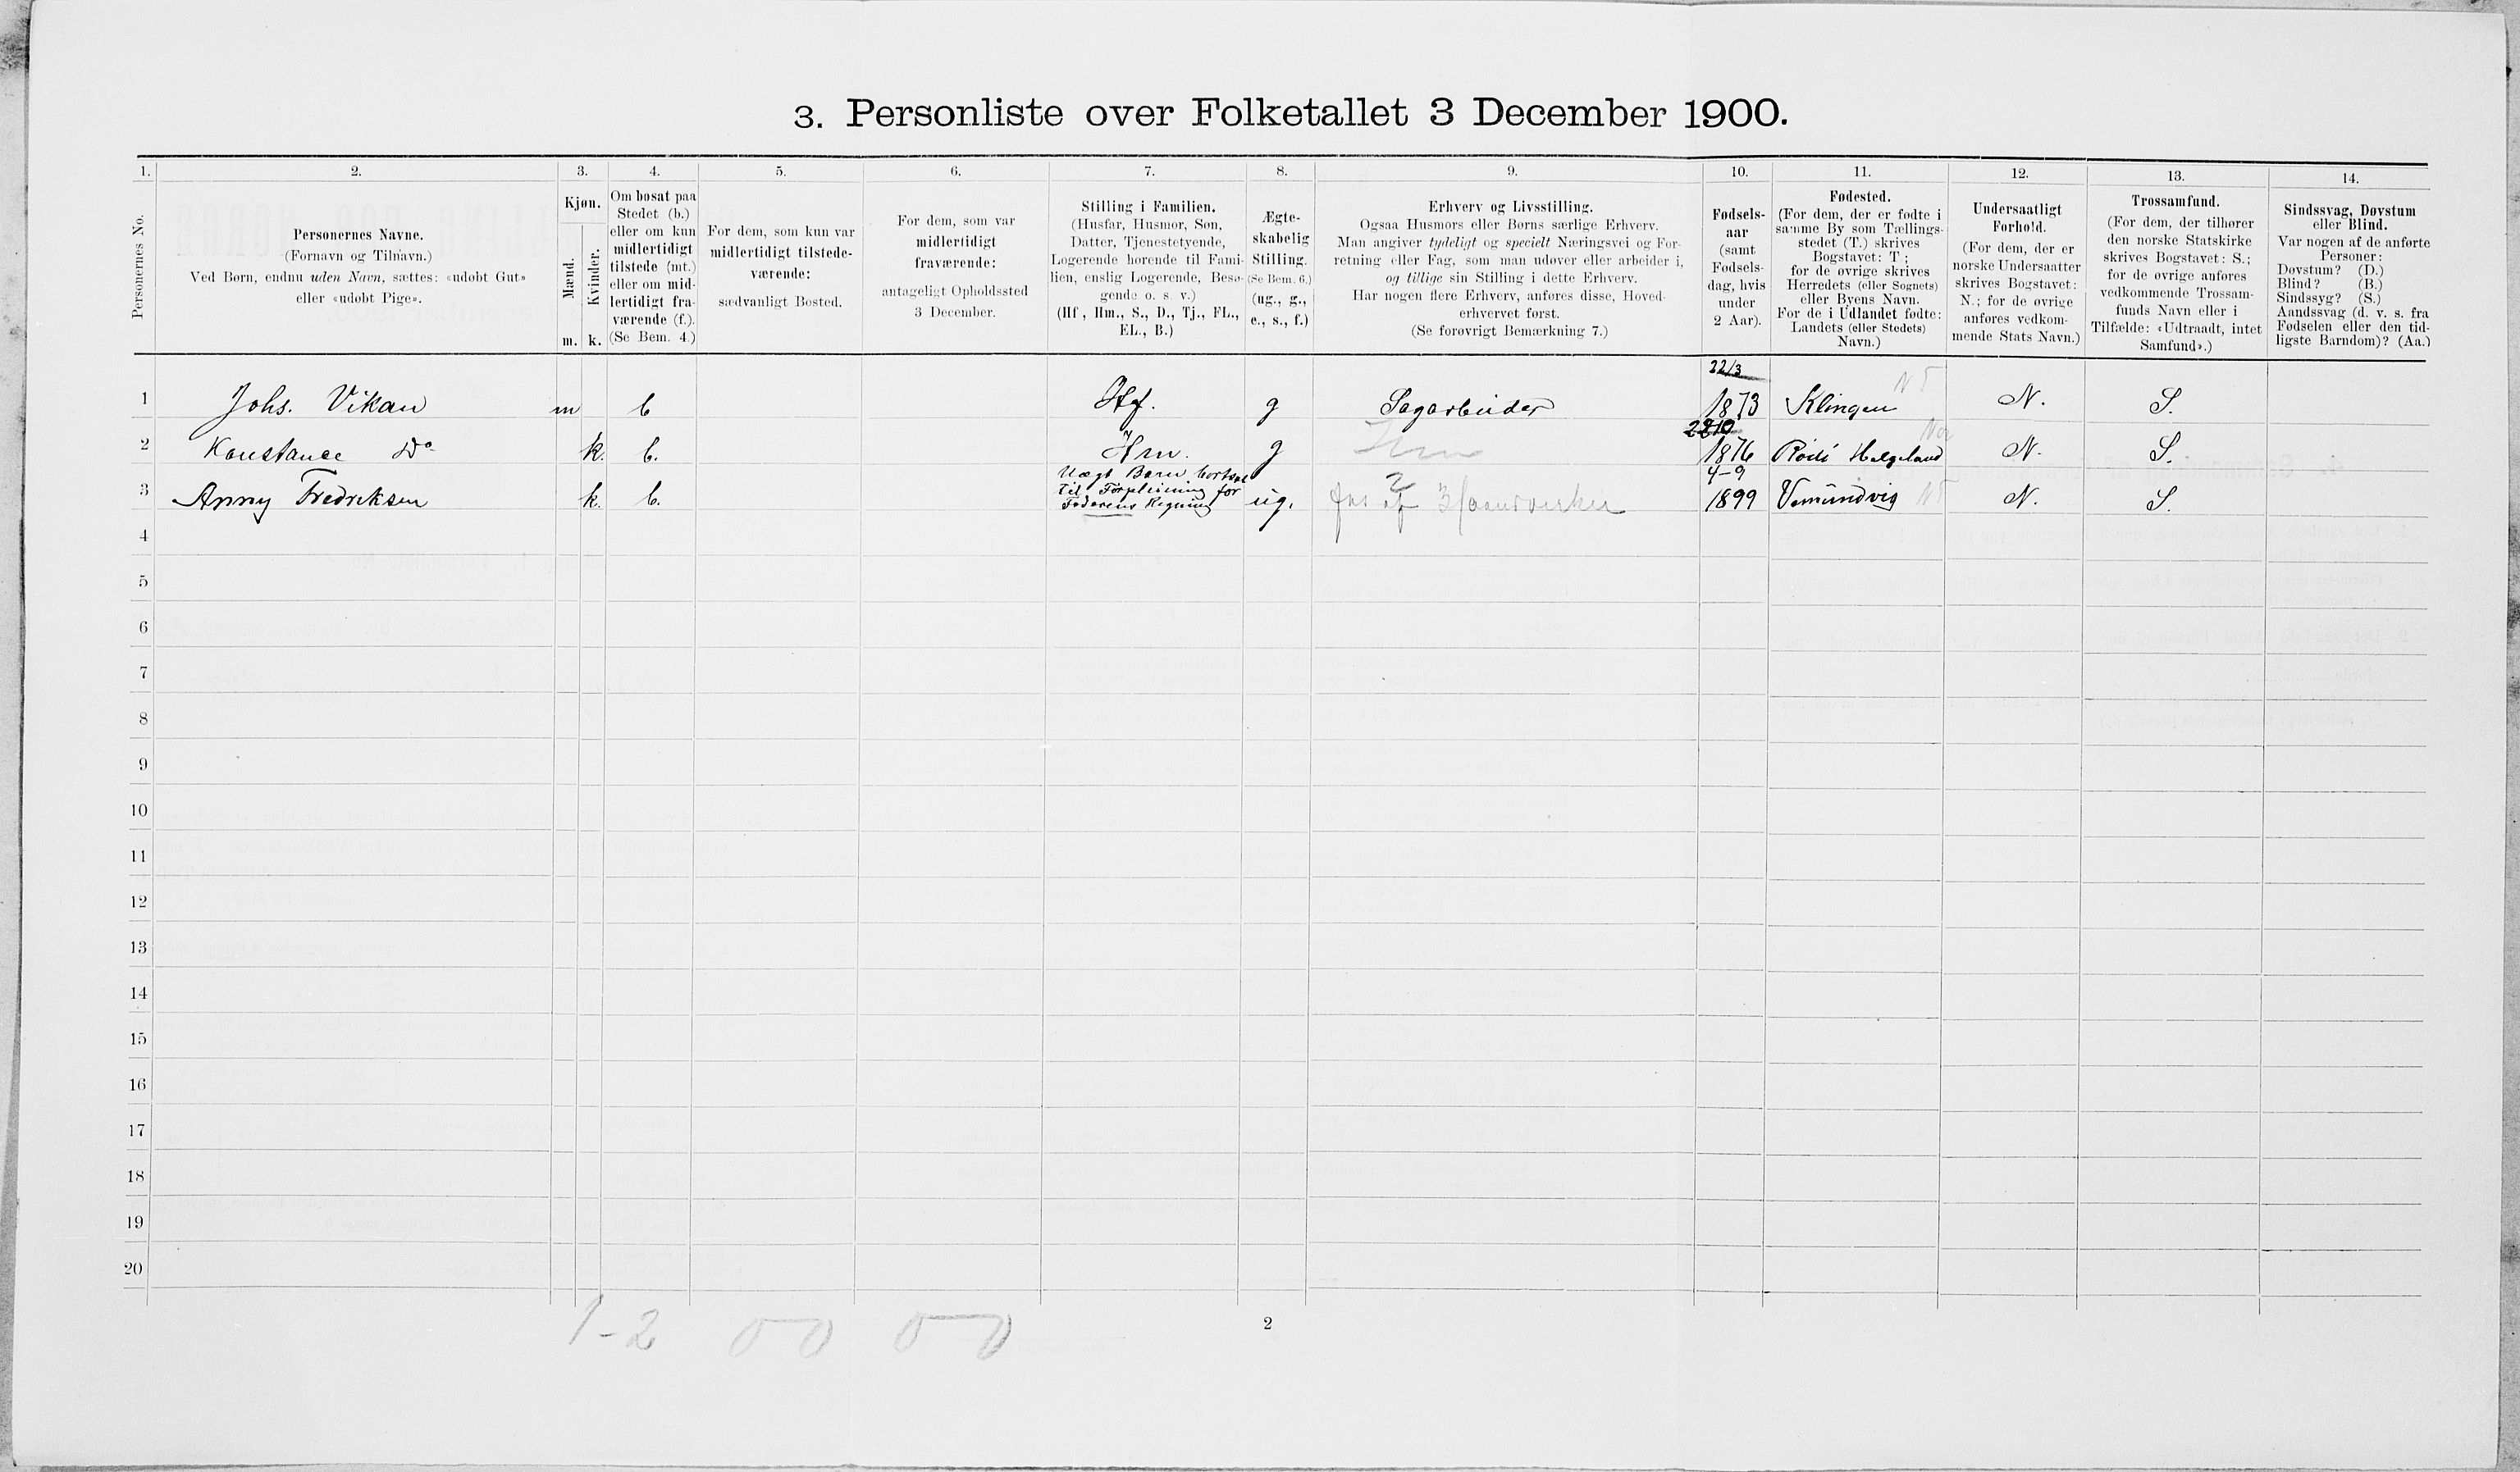 3. Personliste over Folketallet 3 December 1900.
1. 2. 3. 4. 5. 6. 7. 8. 9. 10. 11. 12. 13. 14.
Personernes No.
Personernes Navne.
(Fornavn og Tilnavn.)
Ved Børn, endnu uden Navn, sættes: «udøbt Gut»
eller «udøbt Pige».
Kjøn.
Mænd.
Kvinder.
m. k.
Om bosat paa
Stedet (b.)
eller om kun
midlertidigt
tilstede (mt.)
eller om mid-
lertidigt fra-
værende (f.).
(Se Bem. 4.)
For dem, som kun var
midlertidigt tilstede-
værende:
sædvanligt Bosted.
For dem, som var
midlertidigt
fraværende:
antageligt Opholdssted
3 December.
Stilling i Familien.
(Husfar, Husmor, Søn,
Datter, Tjenestetyende,
Logerende hørende til Fami-
lien, enslig Logerende, Besø-
gende o. s. v.)
(Hf, Hm., S., D., Tj., FL.,
EL., B.)
Ægte-
skabelig
Stilling.
(Se Bem. 6.)
(ug., g.,
e., s., f.)
Erhverv og Livsstilling.
Ogsaa Husmors eller Børns særlige Erhverv.
Man angiver tydeligt og specielt Næringsvei og For-
retning eller Fag, som man udøver eller arbeider i,
og tillige sin Stilling i dette Erhverv.
Har nogen flere Erhverv, anføres disse, Hoved-
erhvervet først.
(Se forøvrigt Bemærkning 7.)
Fødsels-
aar
(samt
Fødsels-
dag, hvis
under
2 Aar).
Fødested.
(For dem, der er fødte i
samme By som Tællings-
stedet (T.) skrives
Bogstavet: T;
for de øvrige skrives
Herredets (eller Sognets)
eller Byens Navn.
For de i Udlandet fødte:
Landets (eller Stedets)
Navn.)
Undersaatligt
Forhold.
(For dem, der er
norske Undersaatter
skrives Bogstavet:
N.; for de øvrige
anføres vedkom-
mende Stats Navn.)
Trossamfund.
(For dem, der tilhører
den norske Statskirke
skrives Bogstavet: S.;
for de øvrige anføres
vedkommende Trossam-
funds Navn eller i
Tilfælde: «Udtraadt, intet
Samfund».)
Sindssvag, Døvstum
eller Blind.
Var nogen af de anførte
Personer:
Døvstum? (D.)
Blind? (B.)
Sindssyg? (S.)
Aandssvag (d. v. s. fra
Fødselen eller den tid-
ligste Barndom)? (Aa.)
22/3
1 Johs. Vikan m b Hf. g Sagarbeider 1873 Klingen N T N. S.
2 Konstance Do k. b. Hm. g Hm 1876 Helgeland N. S.
Uægt Barn bortsat
til Forpleining for
Faderens Regning
4-9
3 Anny Fredriksen k. b. ug. af Haandverker 1899 Vemundvig N T N. S.
4
5
6
7
8
9
10
11
12
13
14
15
16
17
18
19
20
1-2 0 0 0 0
2